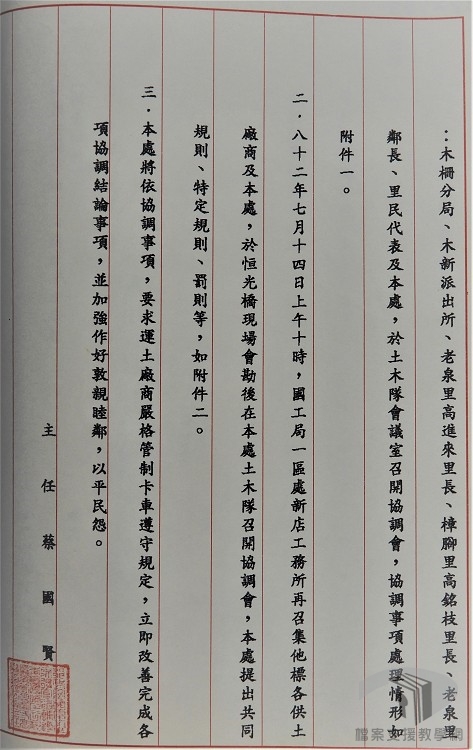 ：木柵分局、木新派出所、老泉里高進來里長、樟腳里高銘枝里長、老泉里
鄰長、里民代表及本處，於土木隊會議室召開協調會，協調事項處理情形如
附件一。
二．八十二年七月十四日上午十時，國工局一區處新店工務所再召集他標各供土
廠商及本處，於恒光橋現場會勘後在本處土木隊召開協調會，本處提出共同
規則、特定規則、罰則等，如附件二。
三．本處將依協調事項，要求運土廠商嚴格管制卡車遵守規定，立即改善完成各
項協調結論事項，並加強作好敦親睦鄰，以平民怨。
主任蔡國賢
檔案支援教學網